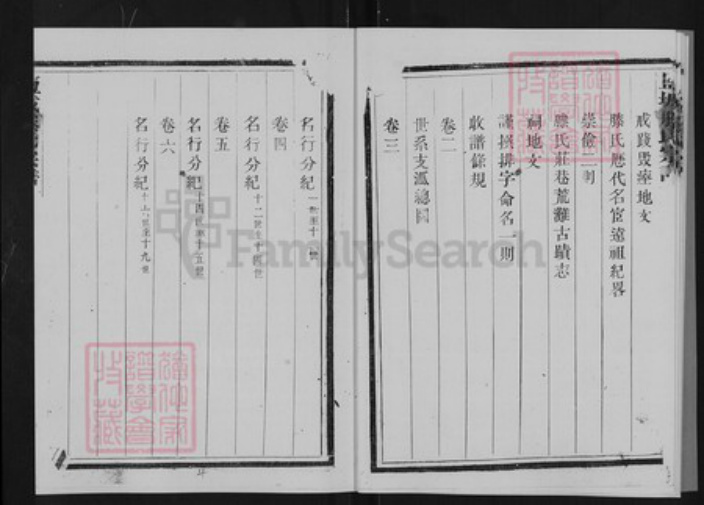 戒踐毀瘞地文
滕氏歷代名宦遠祖紀畧
崇儉 則
滕氏莊巷荒灘古蹟志
祠地文
謹撰排字命名一則
收譜條規
卷二
世系支派總圖
卷三
名行分紀
卷四
名行分紀 十二世至十四世
卷五
名行分紀 十四世至十五世
卷六
名行分紀 十六世至十九世
FamilySearch